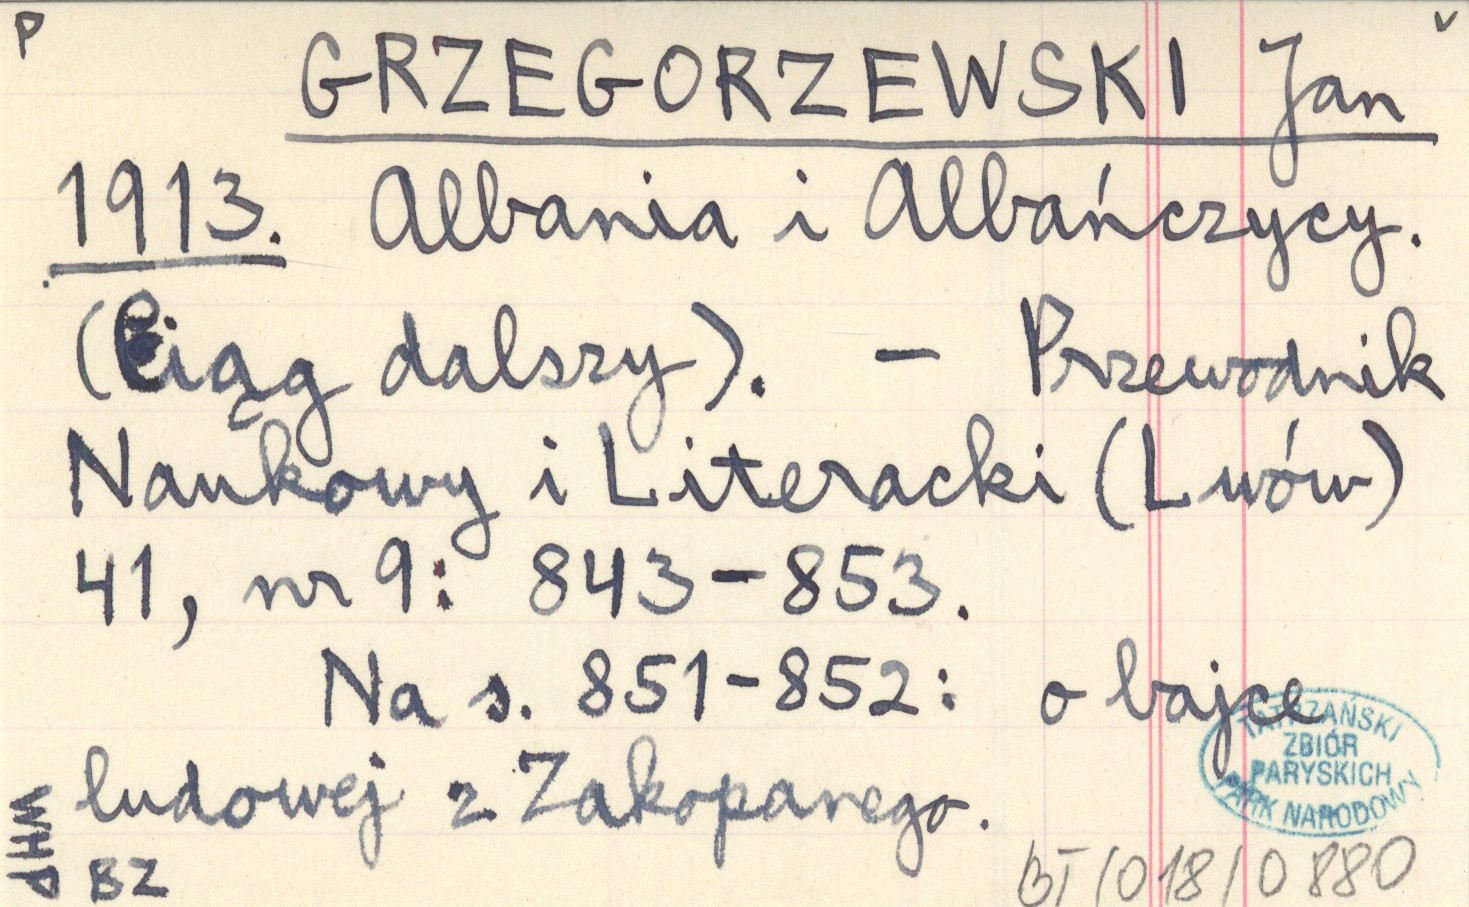 P
v
GRZEGORZEWSKI Jan
1913. Albania i Albańczycy.
(Ciąg dalszy). – Przewodnik
Naukowy i Literacki (Lwów)
41, nr 9: 843–853.
Na s. 851–852: o bajce
ludowej z Zakopanego.
TATRZAŃSKI
ZBIÓR
PARYSKICH
PARK NARODOWY
WHP
BZ
BT/018/0880